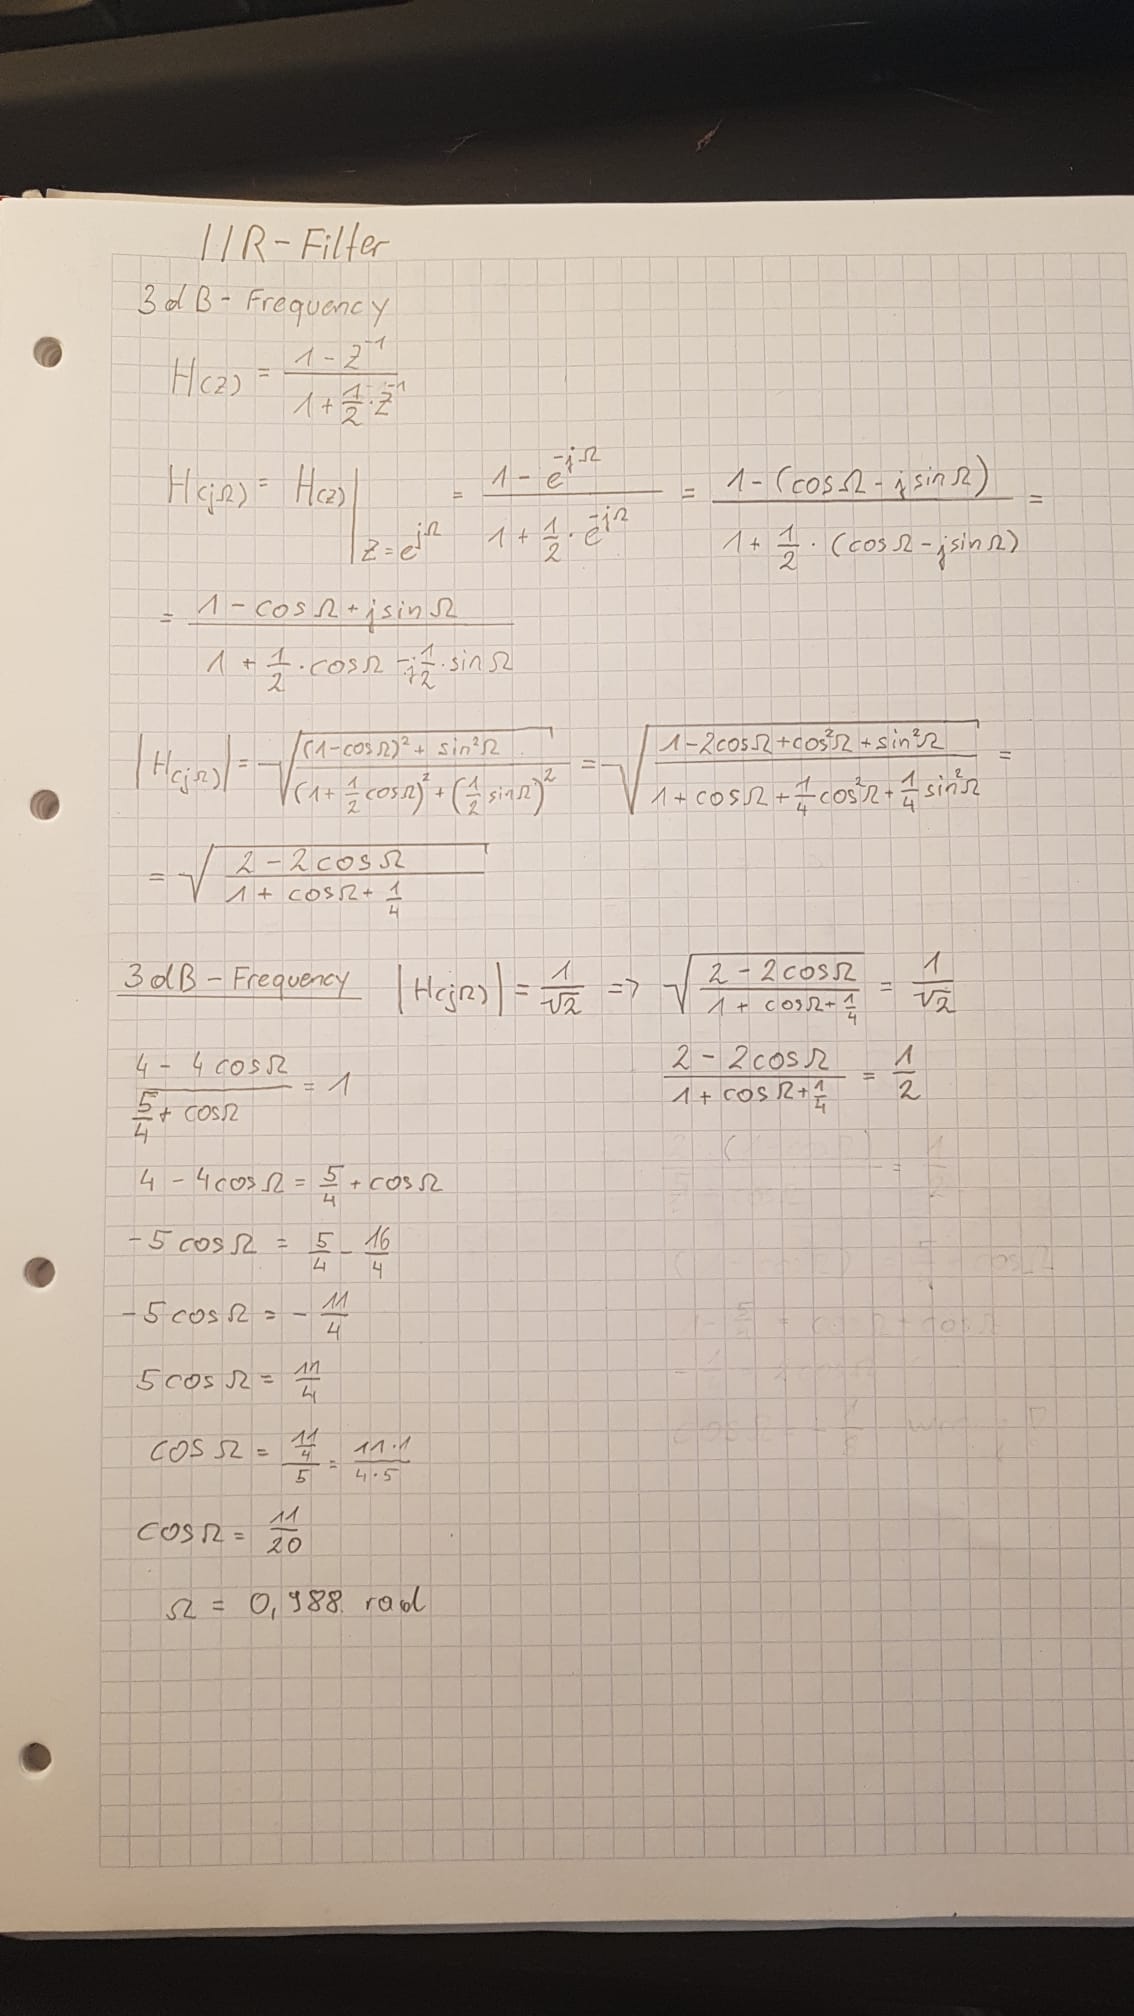 IIR-Filter
3dB-Frequency
H(z) = (1 - z^-1) / (1 + 1/2 · z^-1)
H(jΩ) = H(z)|z=e^jΩ = (1 - e^-jΩ) / (1 + 1/2 · e^-jΩ) = (1 - (cosΩ - jsinΩ)) / (1 + 1/2 · (cosΩ - jsinΩ)) =
= (1 - cosΩ + jsinΩ) / (1 + 1/2 · cosΩ - j1/2 · sinΩ)
|H(jΩ)| = √(((1-cosΩ)² + sin²Ω) / ((1 + 1/2 cosΩ)² + (1/2 sinΩ)²)) = √((1-2cosΩ+cos²Ω+sin²Ω) / (1+cosΩ+1/4cos²Ω+1/4sin²Ω)) =
= √((2 - 2cosΩ) / (1 + cosΩ + 1/4))
3dB-Frequency |H(jΩ)| = 1/√2 => √((2 - 2cosΩ) / (1 + cosΩ + 1/4)) = 1/√2
(2 - 2cosΩ) / (1 + cosΩ + 1/4) = 1/2
(4 - 4cosΩ) / (5/4 + cosΩ) = 1
4 - 4cosΩ = 5/4 + cosΩ
-5cosΩ = 5/4 - 16/4
-5cosΩ = - 11/4
5cosΩ = 11/4
cosΩ = (11/4)/5 = (11·1)/(4·5)
cosΩ = 11/20
Ω = 0,988 rad